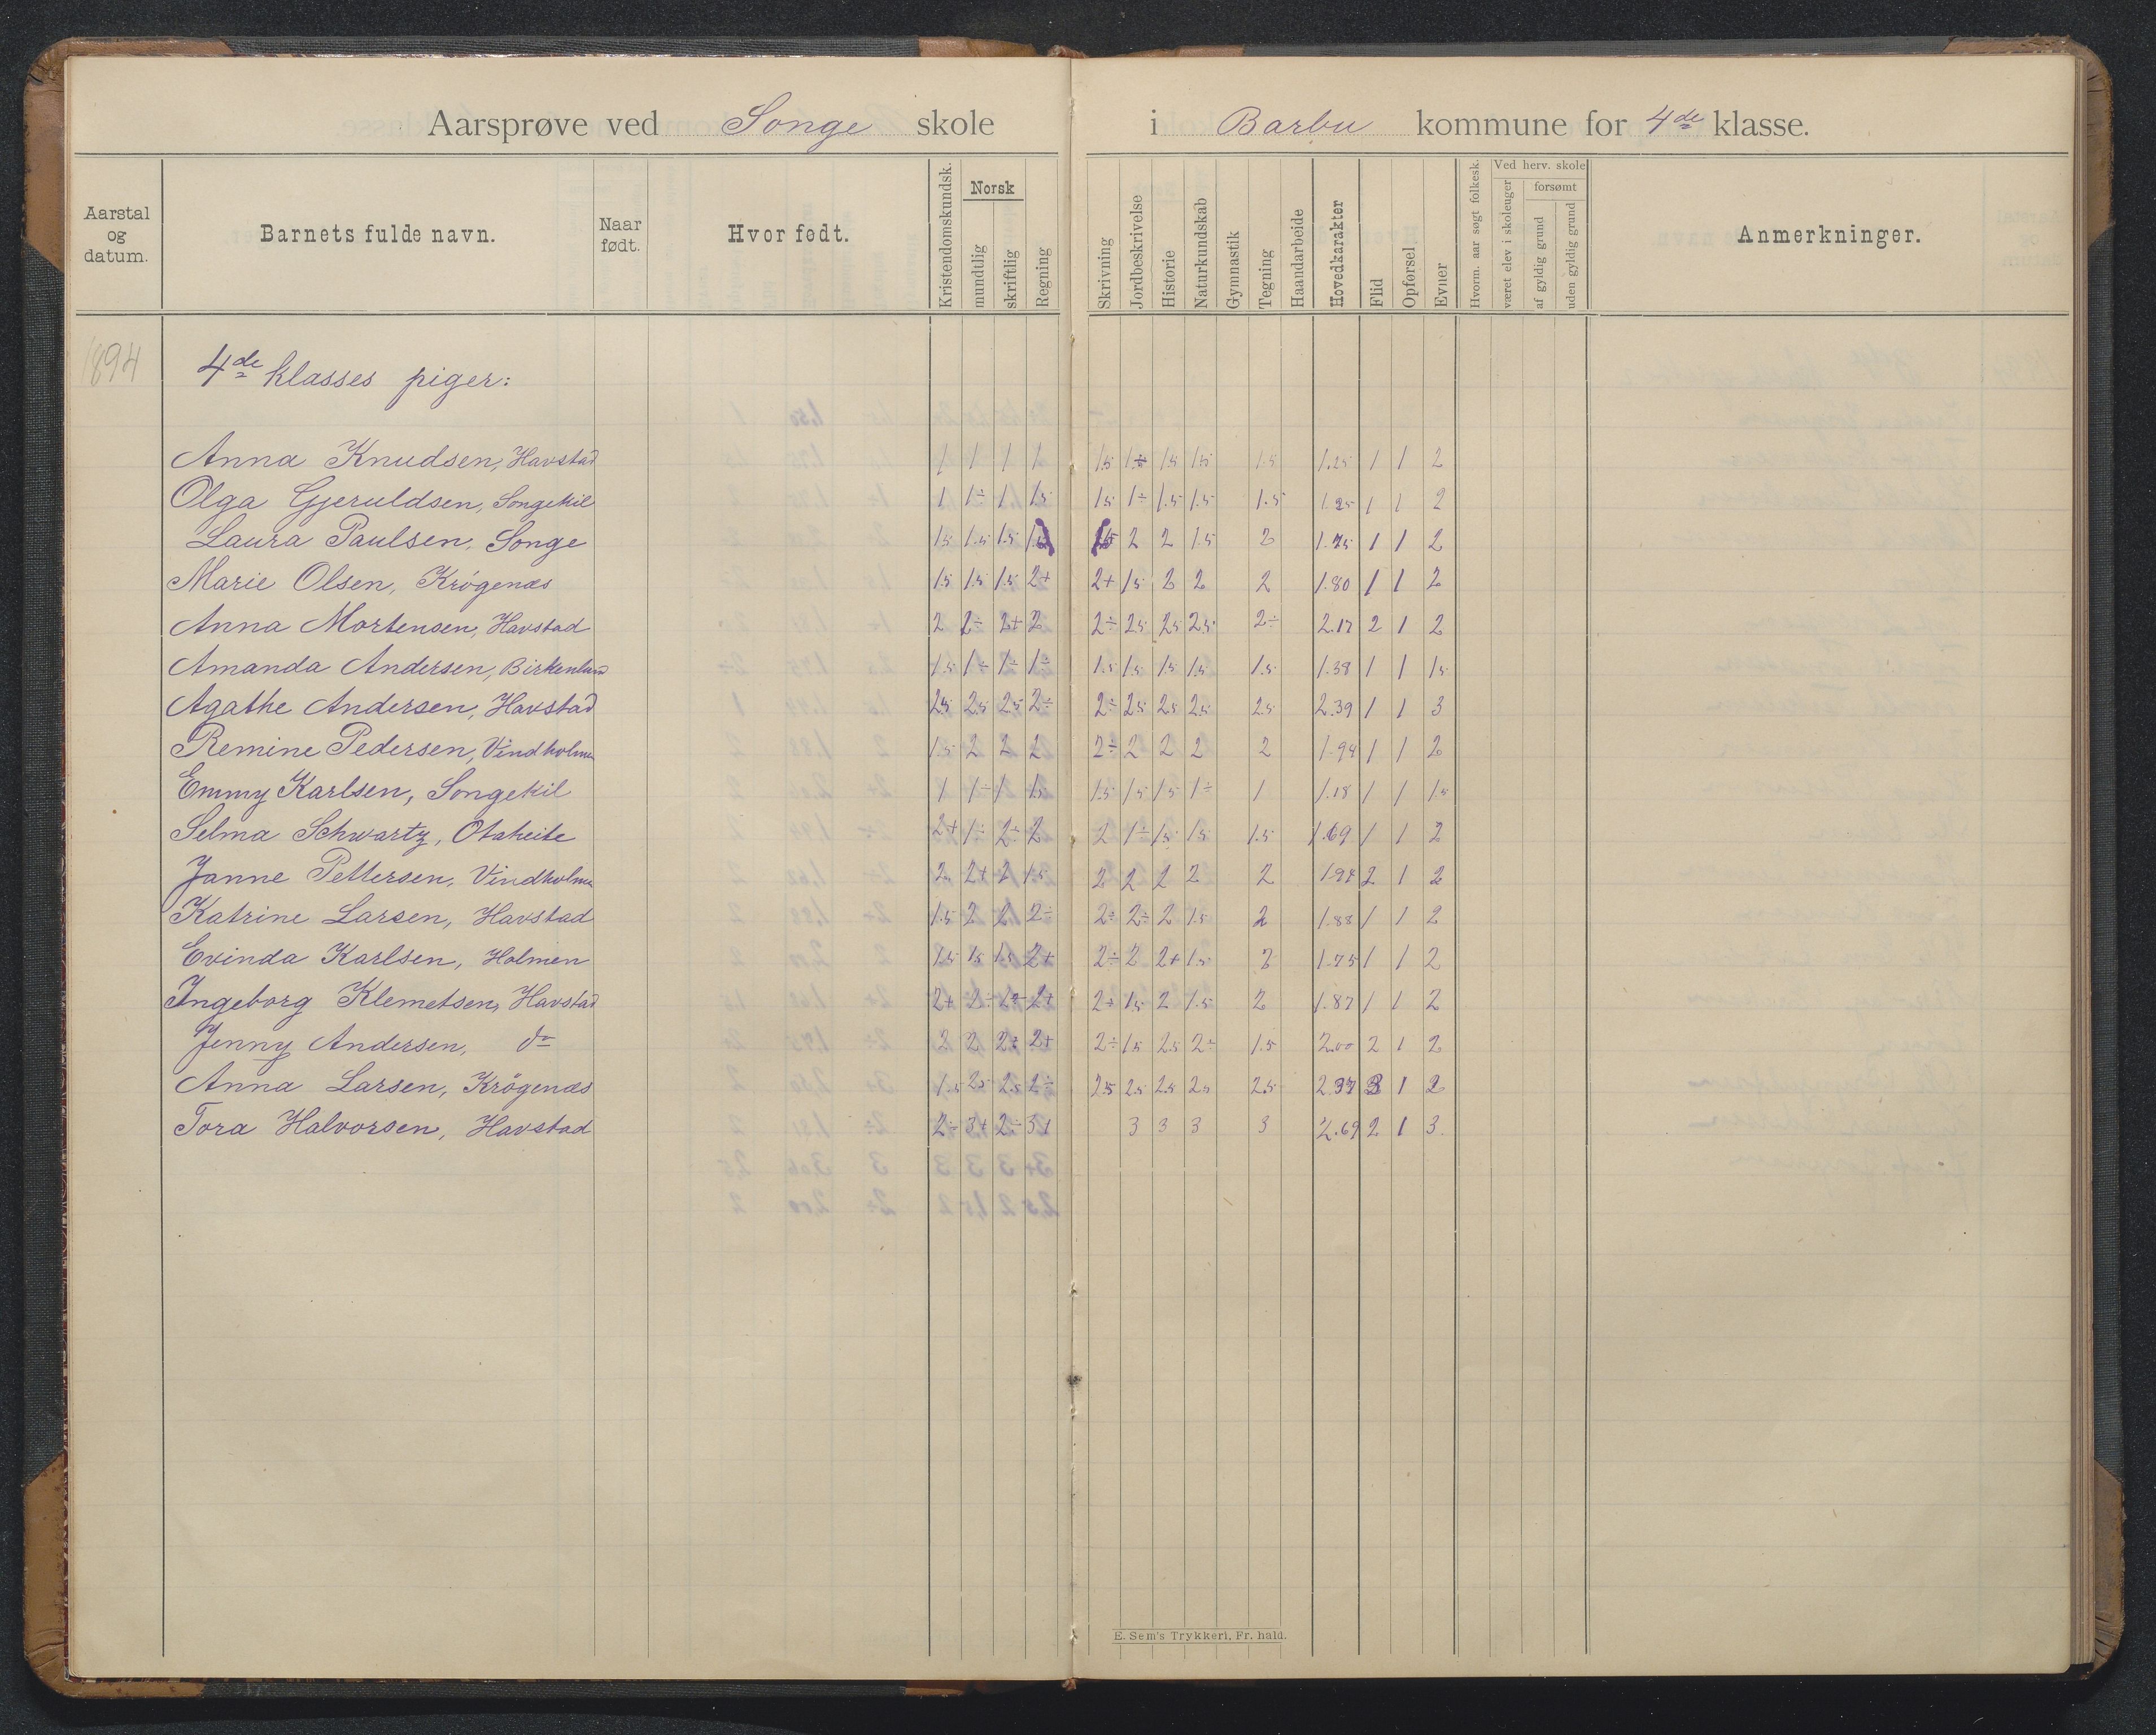 Aarsprøve ved Songe skole i Barbu kommune for 4de klasse.
Aarstal og datum. Barnets fulde navn. Naar født. Hvor født. Kristendomskundsk. Norsk mundtlig skriftlig Regning Skrivning Jordbeskrivelse Historie Naturkundskab Gymnastik Tegning Haandarbeide Hovedkarakter Flid Opførsel Evner Hvorm. aar søgt folkesk. Ved herv. skole været elev i skoleuger forsømt af gyldig grund uden gyldig grund Anmerkninger.
1894 4de klasses piger:
Anna Knudsen, Havstad 1 1 1 1 1.5 1÷ 1.5 1.5 1.5 1.25 1 1 2
Olga Gjeruldsen, Songekil 1 1÷ 1 1.5 1.5 1÷ 1.5 1.5 1.5 1.25 1 1 2
Laura Paulsen, Songe 1.5 1.5 1.5 2 2 1.5 2 1.75 1 1 2
Marie Olsen, Krøgenæs 1.5 1.5 1.5 2+ 2+ 1.5 2 2 2 1.80 1 1 2
Anna Mortensen, Havstad 2 2÷ 2+ 2 2÷ 2.5 2.5 2.5 2÷ 2.17 2 1 2
Amanda Andersen, Birkenlund 1.5 1÷ 1÷ 1÷ 1.5 1.5 1.5 1.5 1.5 1.38 1 1 1.5
Agathe Andersen, Havstad 2.5 2.5 2.5 2÷ 2÷ 2.5 2.5 2.5 2.5 2.39 1 1 3
Remine Pedersen, Vindholmen 1.5 2 2 2 2÷ 2 2 2 2 1.94 1 1 2
Emmy Karlsen, Songekil 1 1÷ 1 1.5 1.5 1.5 1.5 1÷ 1 1.18 1 1 1.5
Selma Schwartz, Otaheite 2+ 1÷ 2÷ 2 2 1÷ 1.5 1.5 1.5 1.69 1 1 2
Janne Pettersen, Vindholmen 2 2+ 2 1.5 2 2 2 2 2 1.94 2 1 2
Katrine Larsen, Havstad 1.5 2 2 2÷ 2÷ 2÷ 2 1.5 2 1.88 1 1 2
Evinda Karlsen, Holmen 1.5 1.5 1.5 2+ 2÷ 2 2+ 1.5 2 1.75 1 1 2
Ingeborg Klemetsen, Havstad 2+ 2÷ 2÷ 2+ 2+ 1.5 2 1.5 2 1.87 1 1 2
Jenny Andersen, do 2 2 2÷ 2+ 2÷ 1.5 2.5 2÷ 1.5 2.00 2 1 2
Anna Larsen, Krøgenæs 1.5 2.5 2.5 2÷ 2.5 2.5 2.5 2.5 2.5 2.37 3 1 2
Tora Halvorsen, Havstad 2÷ 3+ 2÷ 3+ 3 3 3 3 2.69 2 1 3.
E. Sem's Trykkeri, Fr. hald.